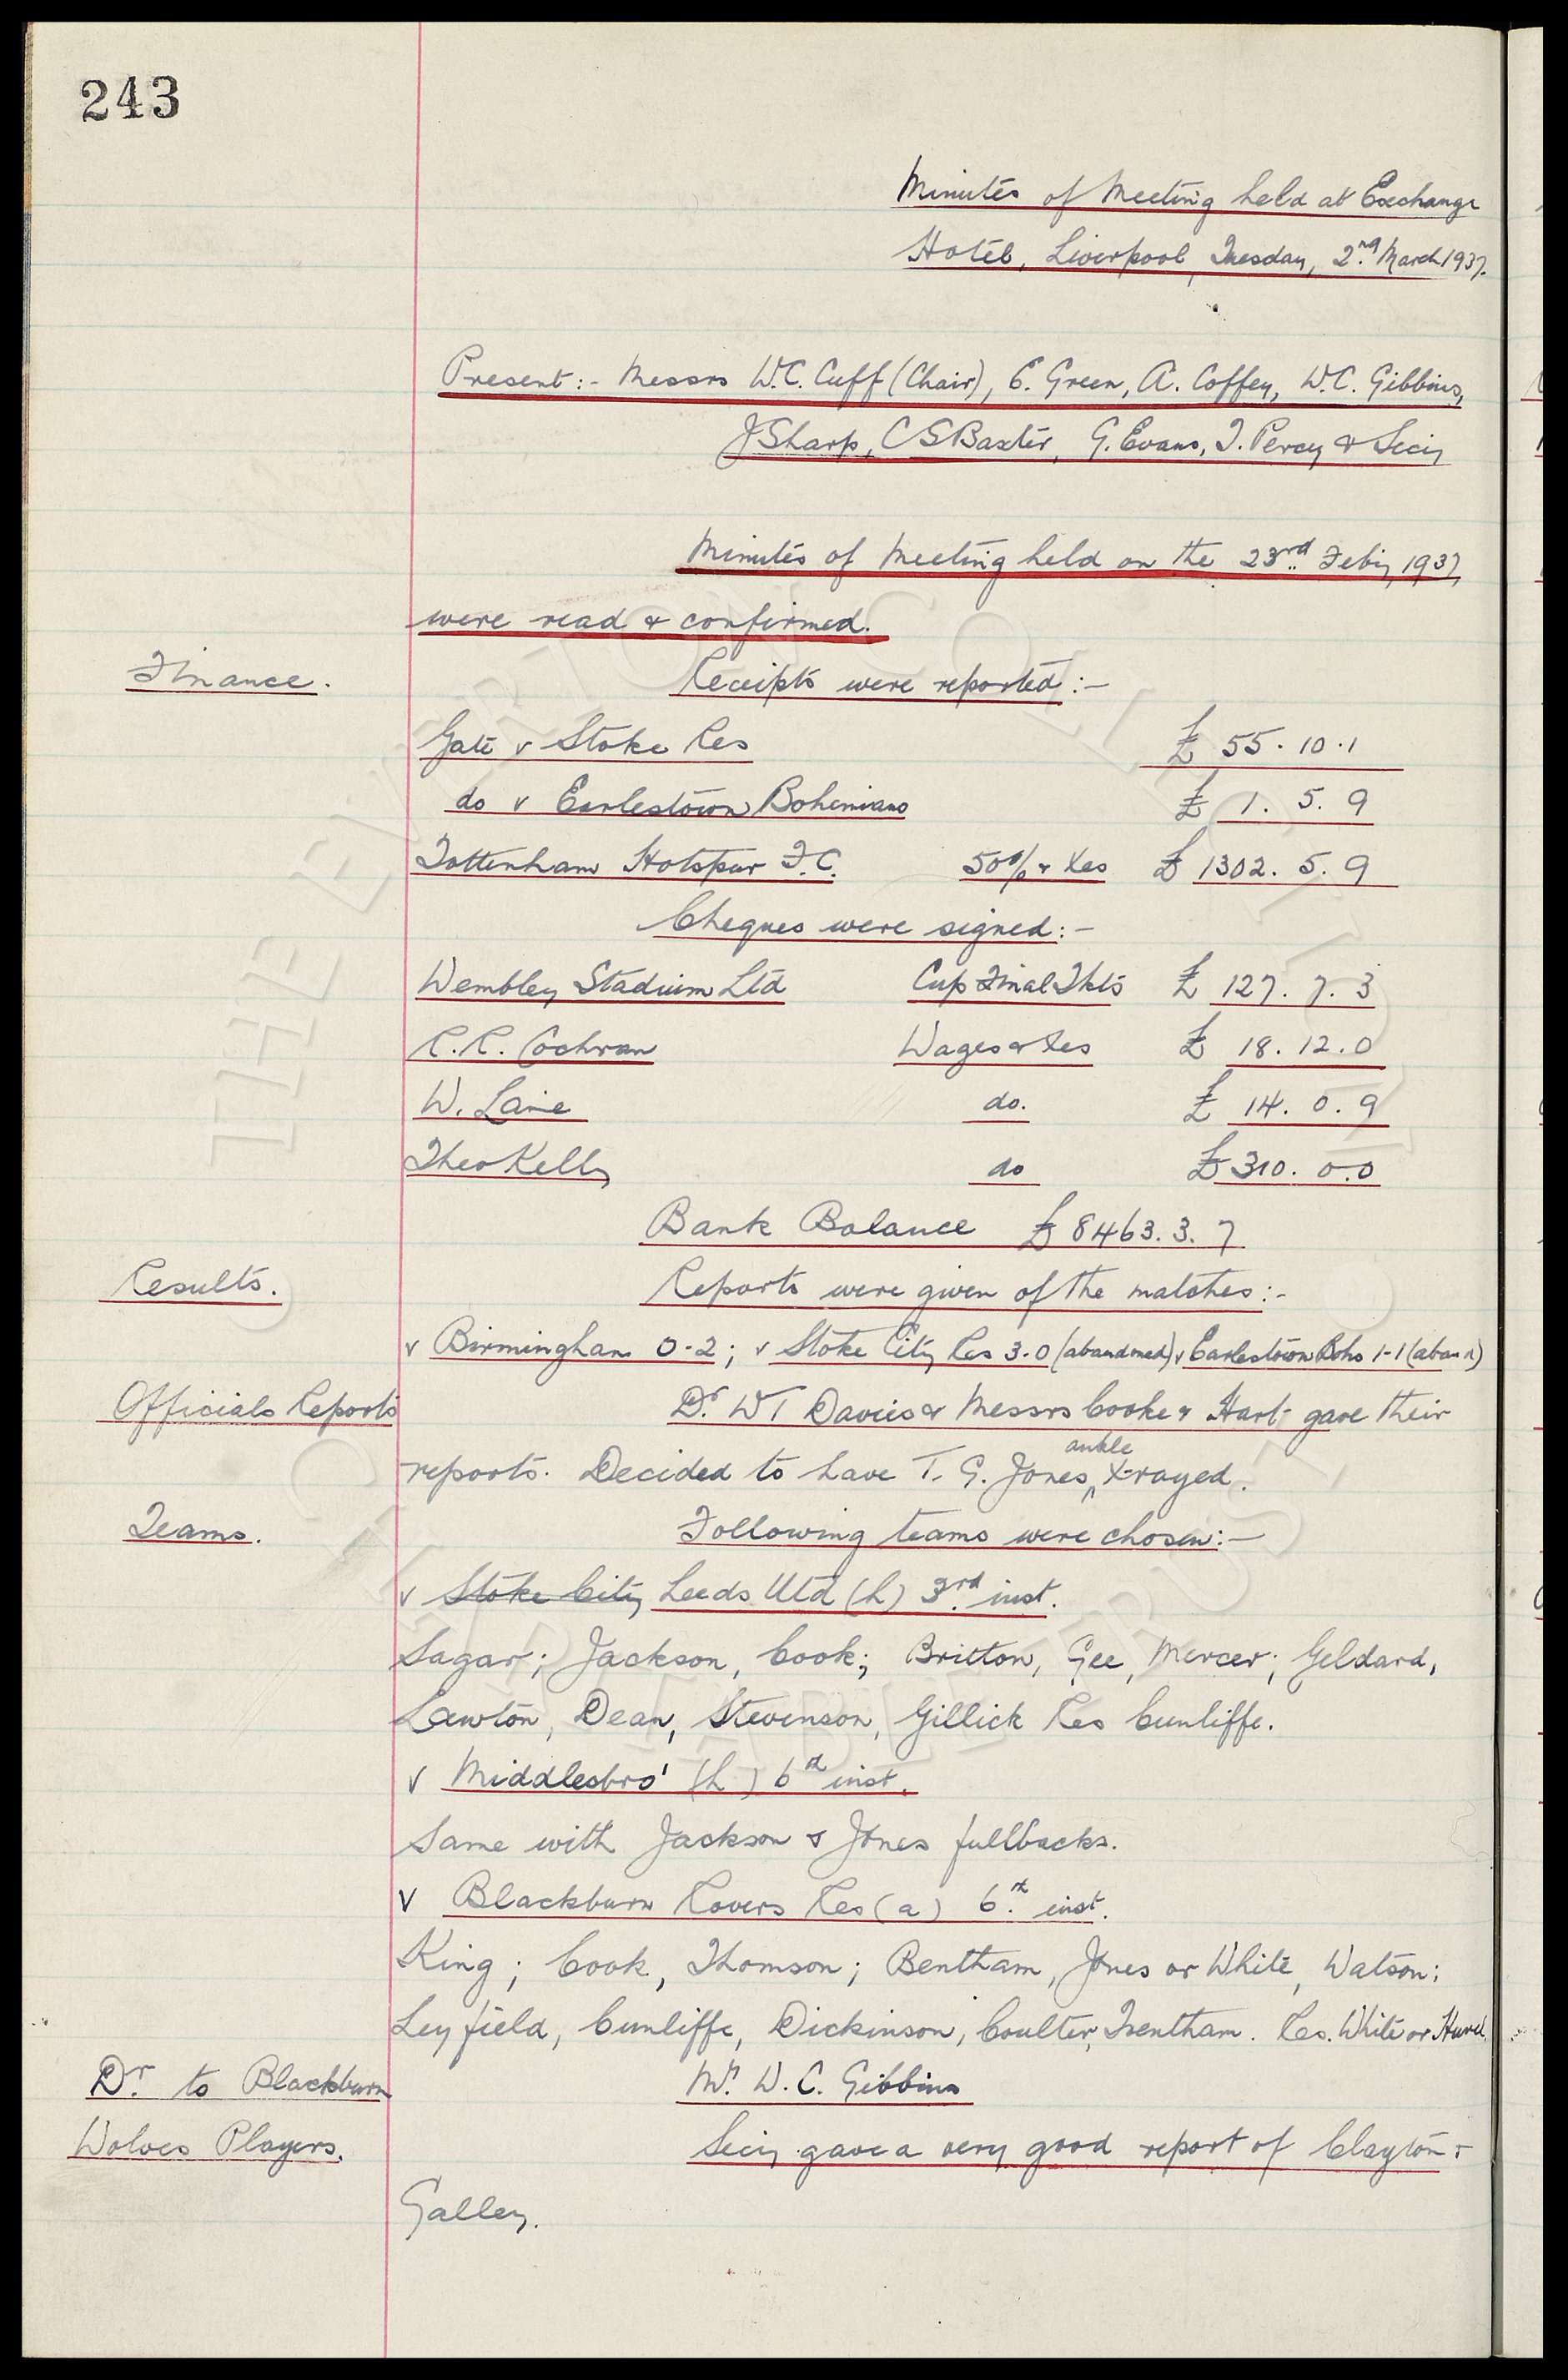 243
Minutes of Meeting held at Exchange
Hotel, Liverpool, Tuesday, 2nd March 1937.
Present:- Messrs W.C. Cuff (Chair), E. Green, A. Coffey, W.C. Gibbins,
J Sharp, C S Baxter, G. Evans, T. Percy & Secy
Minutes of Meeting held on the 23rd Feby 1937
were read & confirmed.
Finance.
Receipts were reported:-
Gate v Stoke Res £ 55. 10. 1
do v Earlestown Bohemians £ 1. 5. 9
Tottenham Hotspur F.C. 50% & Xes £ 1302. 5. 9
Cheques were signed:-
Wembley Stadium Ltd Cup Final Tkts £ 127. 7. 3
R.R. Cochran Wages & Xes £ 18. 12. 0
W. Laine do. £ 14. 0. 9
Theo Kelly do £ 310. 0. 0
Bank Balance £ 8463. 3. 7
Results.
Reports were given of the matches:-
v Birmingham 0-2; v Stoke City Res 3.0 (abandoned) v Earlestown Bohs 1-1 (aban d)
Officials Reports
Dr. W T Davies & Messrs Cooke & Hart gave their
reports. Decided to have T. G. Jones ankle X-rayed.
Teams.
Following teams were chosen:-
v Stoke City Leeds Utd (h) 3rd inst.
Sagar; Jackson, Cook; Britton, Gee, Mercer; Geldard,
Lawton, Dean, Stevenson, Gillick Res Cunliffe.
v Middlesbro' (h) 6th inst.
Same with Jackson & Jones fullbacks.
v Blackburn Rovers Res (a) 6th inst.
King; Cook, Thomson; Bentham, Jones or White, Watson;
Leyfield, Cunliffe, Dickinson, Coulter, Trentham. Res. White or Hurel.
Dr. to Blackburn
Mr. W. C. Gibbins
Wolves Players.
Secy gave a very good report of Clayton &
Galley.